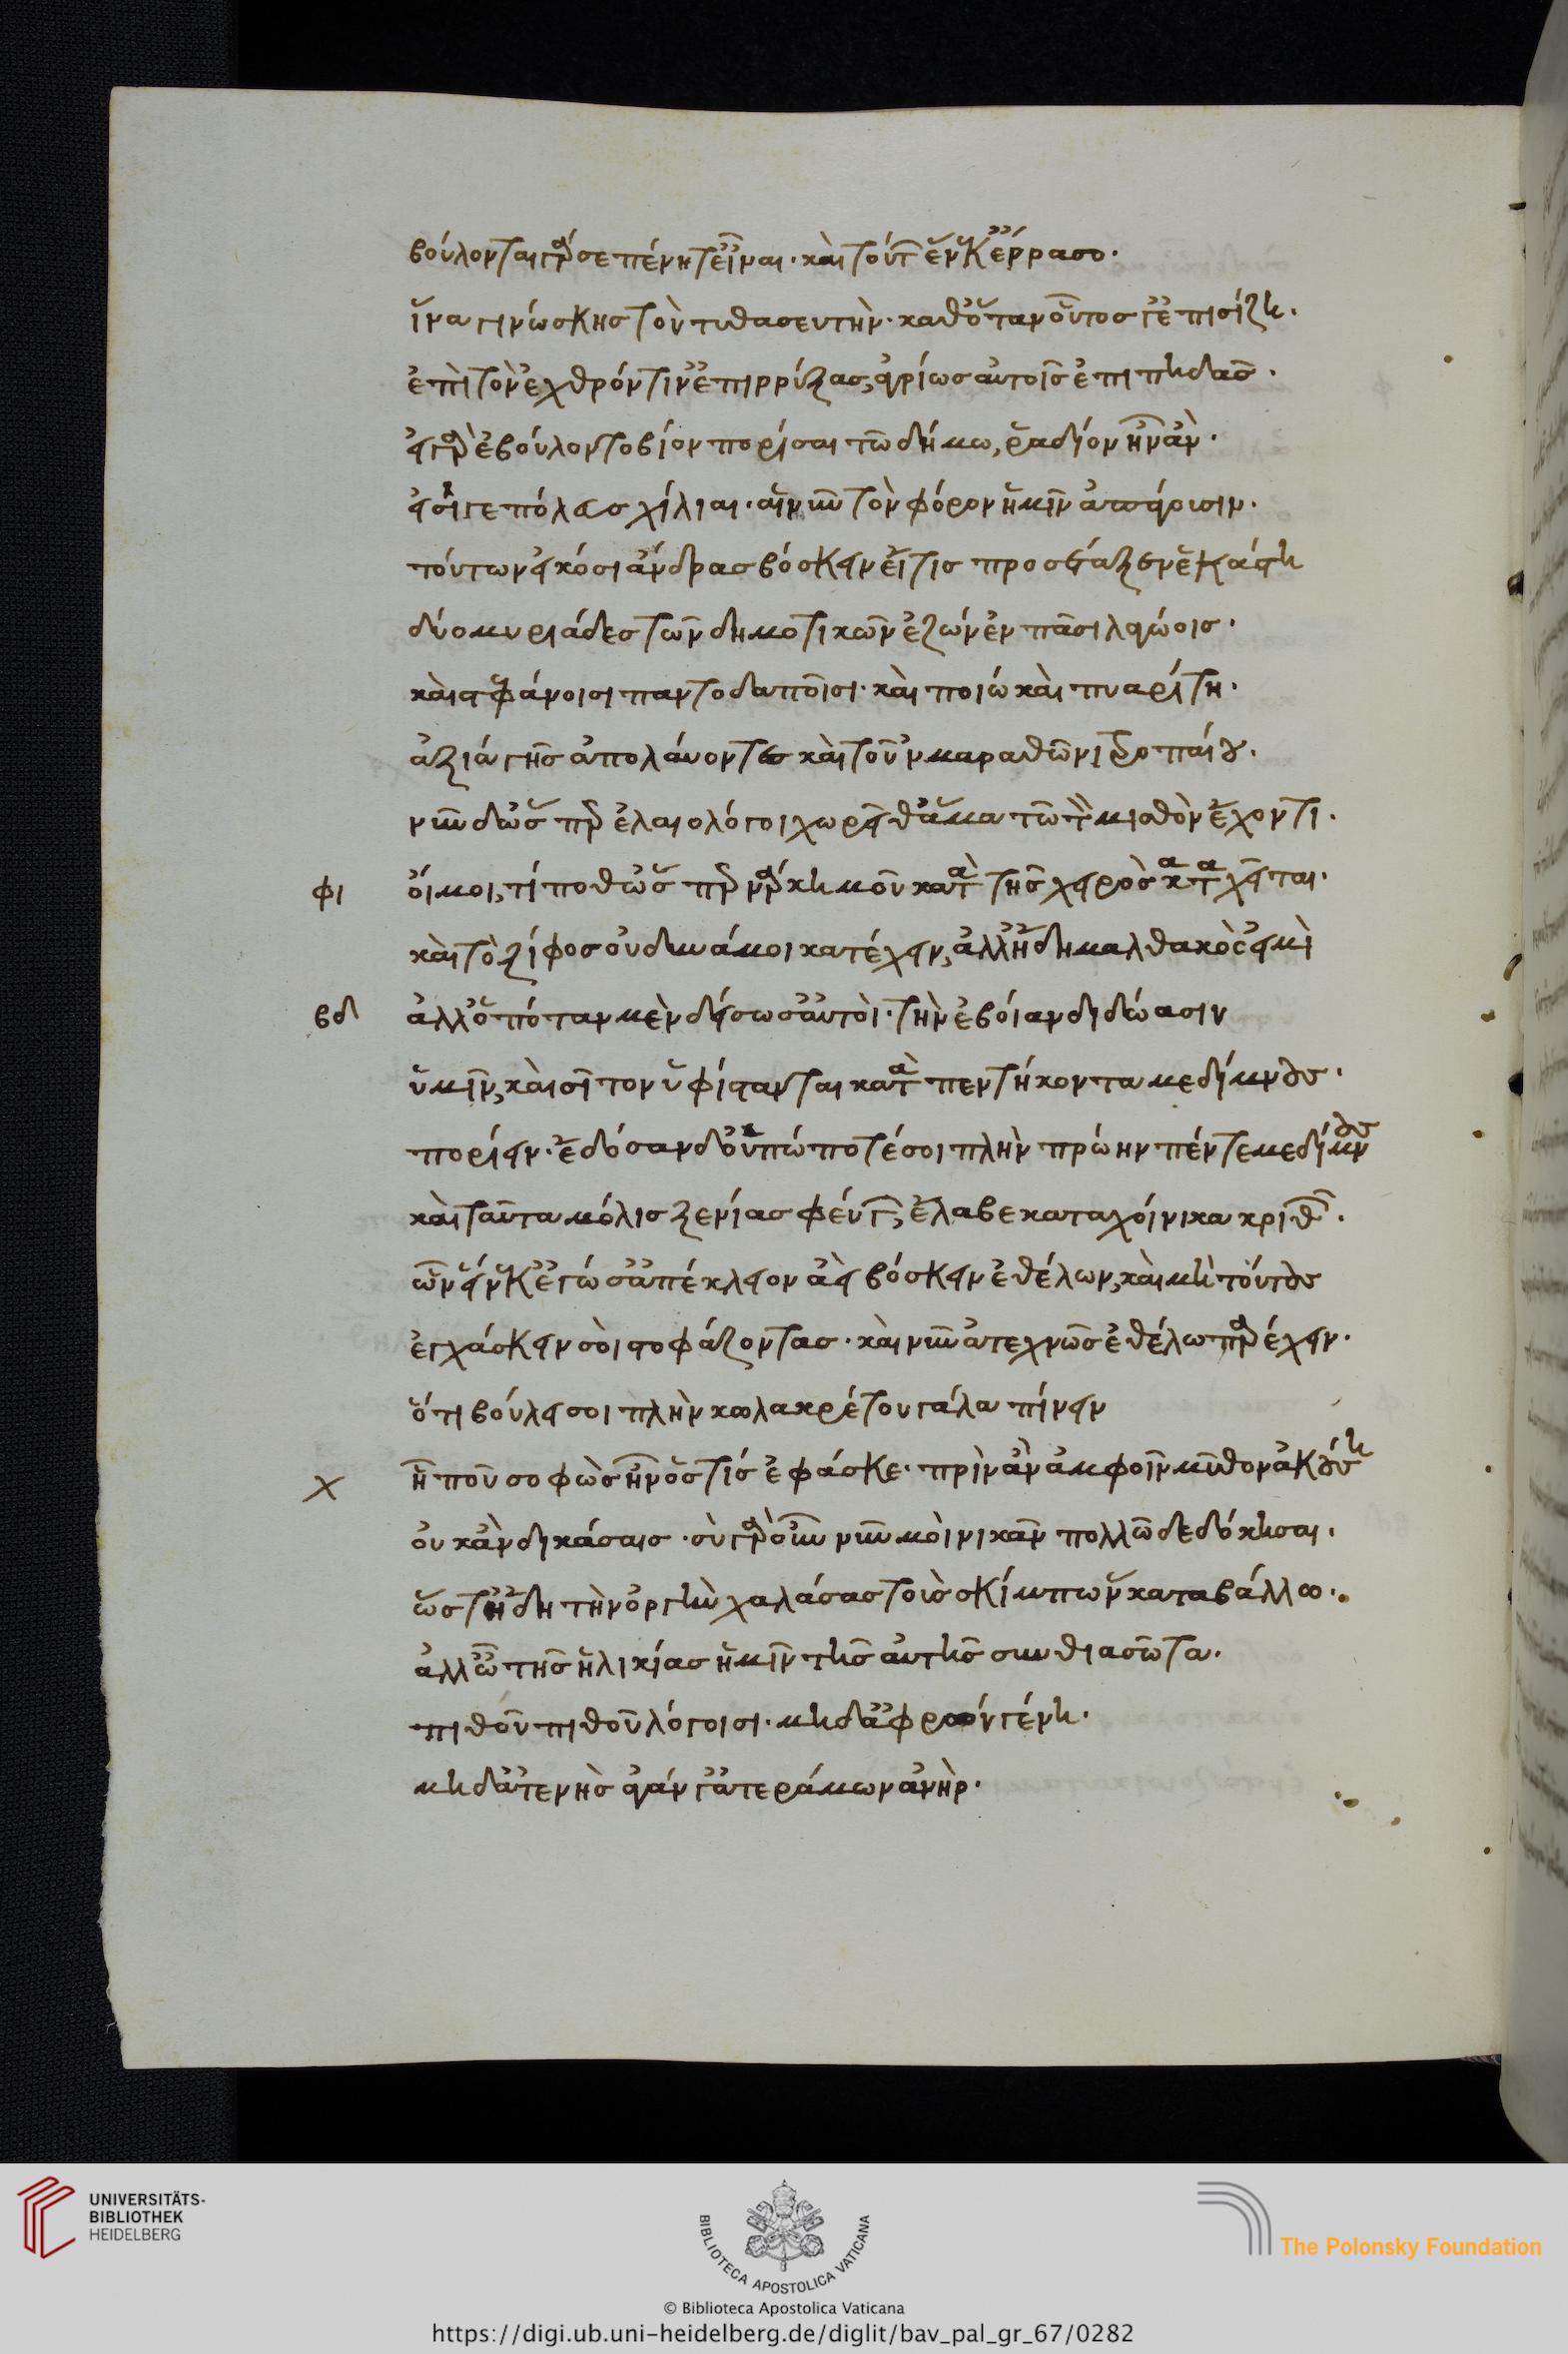 βούλονται γάρ σε πένητ' εἶναι· καὶ τούτ' ἕνεκ' ἔρρασο·
ἵνα γινώσκης τὸν τιθασευτὴν· καθ' ὅταν οὗτος γ' ἐπισίζη·
ἐπὶ τὸν ἐχθρόν τιν' ἐπιρρίξας, ἀγρίως αὐτοῖς ἐπιπηδᾶς·
εἰ γὰρ ἐβούλοντο βίον πορίσαι τῶ δήμω, ῥαδίον ἦν ἂν·
εἰσί γε πόλεις χίλιαι· αἳ νῦν τὸν φόρον ἡμῖν ἀπάγουσιν·
τούτων εἰκόσι ἄνδρας βόσκειν εἴ τις προσέταξεν ἑκάστη
δύο μυριάδες τῶν δημοτικῶν ἔζων ἐν πᾶσι λαγώοις·
καὶ στεφάνοισι παντοδαποῖσι· καὶ ποιώ καὶ πυαρίτη·
ἄξια γῆς ἀπολάυοντες καὶ τοῦν μαραθῶνι τροπαίου·
νῦν δ' ὥσπερ ἐλαιολόγοι χωρεῖθ' ἅμα τῶ τὸν μισθὸν ἔχοντι·
φι οἴμοι, τί ποθ' ὥσπερ νάρκη μοῦ κατὰ τῆς χειρὸς καταχεῖται·
καὶ τὸ ξίφος οὐ δυνάμαι κατέχειν, ἀλλ' ἤδη μαλθακὸς εἰμὶ
βδ ἀλλ' ὁπόταν μὲν δείσωσ' αὐτοὶ· τὴν ἐβοίαν διδόασιν
ὑμῖν, καὶ σῖτον ὑφίστανται κατὰ πεντήκοντα μεδίμνους·
πορίειν· ἔδοσαν δ' οὐπώποτέ σοι πλὴν πρώην πέντε μεδίμνους
καὶ ταῦτα μόλις ξενίας φεύγων, ἔλαβε καταχοίνικα κριθῶν·
ὧν εἵνεκ' ἐγώ σ' ἀπέκλειον ἀεὶ βόσκειν ἐθέλων, καὶ μὴ τούτους
ἐγχάσκειν σοὶ στοφάζοντας· καὶ νῦν ἀτεχνῶς ἐθέλω παρέχειν·
ὅτι βούλει σοι πλὴν κωλακρέτου γάλα πίνειν
χ ἦ ποῦ σοφὼς ἦν ὅστίς ἔφάσκε· πρὶν ἂν ἀμφοῖν μῦθον ἀκούση
οὐκ ἂν δικάσαις· σὺ γὰρ οὖν νῦν μοὶ νικᾶν πολλῶ δεδόκησαι·
ὥστ' ἤδη τὴν ὀργὴν χαλάσας τοὺς σκίμπων καταβάλλω·
ἀλλ' ὦ τῆς ἡλικίας ἡμῖν τῆς αὐτῆς συνθιασῶτα·
πιθοῦ πιθοῦ λόγοισι· μηδ' ἄφρων γένη·
μηδ' ἀτενὴς ἄγαν γ' ἀτεράμων ἀνὴρ·
UNIVERSITÄTS-
BIBLIOTHEK
HEIDELBERG
BIBLIOTECA APOSTOLICA VATICANA
The Polonsky Foundation
© Biblioteca Apostolica Vaticana
https://digi.ub.uni-heidelberg.de/diglit/bav_pal_gr_67/0282